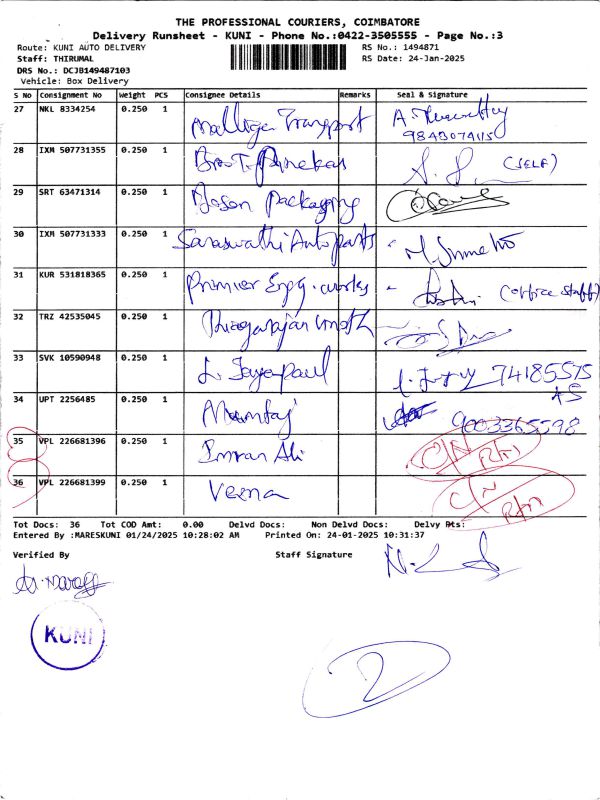 THE PROFESSIONAL COURIERS, COIMBATORE
Delivery Runsheet - KUNI - Phone No.:0422-3505555 - Page No.:3
Route: KUNI AUTO DELIVERY RS No.: 1494871
Staff: THIRUMAL RS Date: 24-Jan-2025
DRS No.: DCJB149487103
Vehicle: Box Delivery
S No Consignment No Weight PCS Consignee Details Remarks Seal & Signature
27 NKL 8334254 0.250 1 Malliga Transport
9843074115
28 IXM 507731355 0.250 1 (SELF)
29 SRT 63471314 0.250 1 Packaging
30 IXM 507731333 0.250 1 Saraswathi Autoparts
31 KUR 531818365 0.250 1 Premier Engg. works (Office Staff)
32 TRZ 42535045 0.250 1 Thiagarajan
33 SVK 10590948 0.250 1 L. Jayapaul 74185575
34 UPT 2256485 0.250 1 Mumtaj 9003365598
35 VPL 226681396 0.250 1 Imran Ali C/N Rtn
36 VPL 226681399 0.250 1 Veena C/N Rtn
Tot Docs: 36 Tot COD Amt: 0.00 Delvd Docs: Non Delvd Docs: Delvy Pts:
Entered By :MARESKUNI 01/24/2025 10:28:02 AM Printed On: 24-01-2025 10:31:37
Verified By Staff Signature
KUNI
2